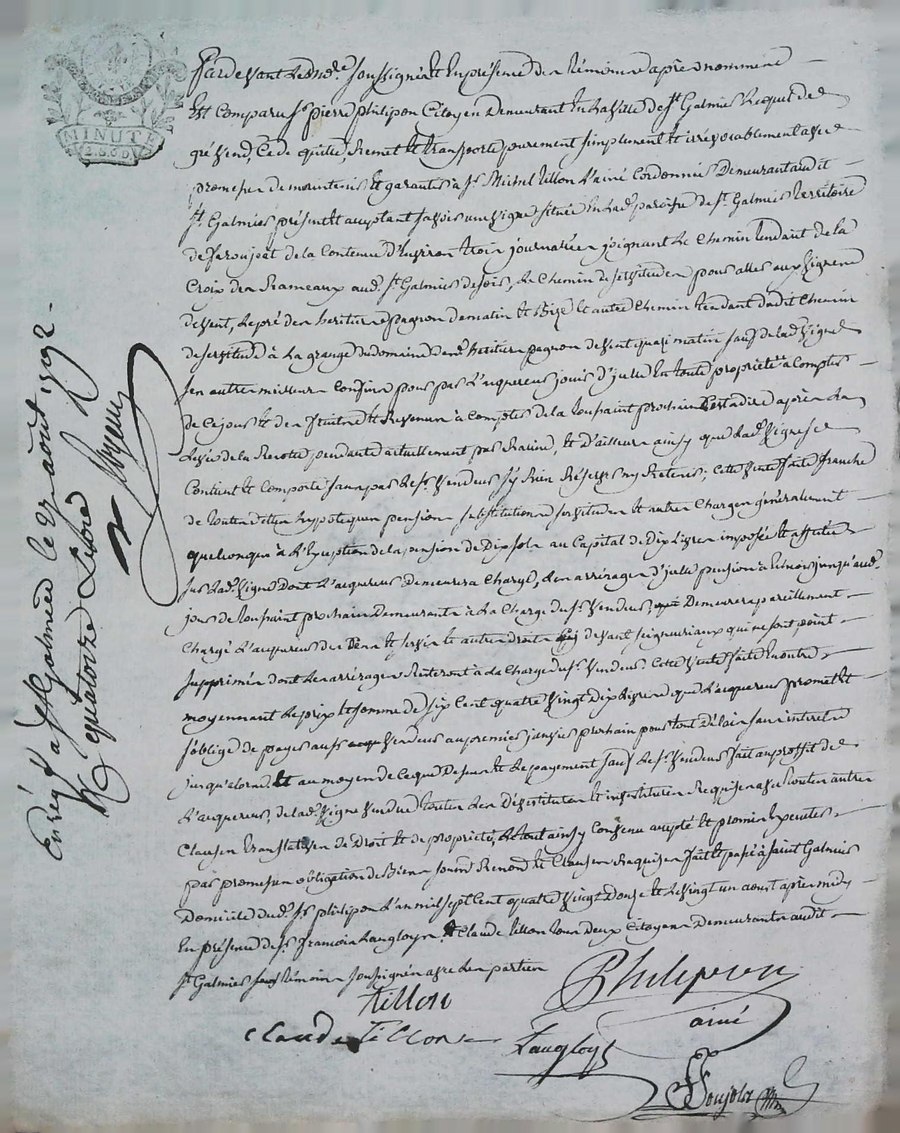 MINUTE
2. S. 6 D
Pardevant le Notre soussigné et En présence des témoins après nommés
Est Comparu sr pierre philipon Citoyen Demeurant En la ville de st Galmier Lequel de
gré vend, Cede quitte, Remet et transporte purement simplement et irrévocablement avec
promesse de maintenir et garantir à sr Michel tillon L'ainé Cordonnier Demeurant audit
st Galmier présent et acceptant savoir une vigne située En lad. paroisse de st Galmier territoire
de la Contenue d'Environ trois journalées joignant Le Chemin tendant de la
Croix des Rameaux aud. st Galmier de soir, Le Chemin de servitude pour aller aux vignes
de vent, le pré des heritiers pagnon de matin et Bize et autre Chemin tendant dudit Chemin
de servitude à La grange du domaine des. heritiers pagnon de vent quasi matin sauf de lad. vigne
ses autres meilleurs Confins pour par L'aquereur jouir d'icelle En toute propriété à Compter
de Ce jour et des fruits et Revenus à Compter de la toussaint prochain C'est à dire après La
Levée de la Recolte pendante actuellement par Racine, et d'ailleurs ainsy que lad. vigne se
Contient et Comporte sans par le sr. vendeur s'y Rien Réserver ny Retenir ; Cette vente faite franche
de toutes dettes hypoteques pensions substitutions servitudes et autres Charges généralement
quelconques à L'Exception de la pension de Dix sols au Capital de Dix Livres imposée et affectée
sur lad. vigne Dont L'aquereur demeurera Chargé, les arrérages d'icelle pension à Echoir jusqu'aud.
jour de toussaint prochain Demeurants à La Charge du sr. vendeur, Demeurera pareillement
Chargé L'aquereur des Cens et servis et autres droits Cy devant seigneuriaux qui ne sont point
supprimés dont Les arrérages Resteront à La Charge du sr. vendeur Cette vente faite En outre
moyennant Le prix et somme de six Cent quatre vingt Dix Livres que L'aquereur promet et
s'oblige de payer au sr vendeur au premier janvier prochain pour tout délai sans interets
jusqu'alors et au moyen de Ce que Dessus et Le payement sauf le sr. vendeur fait au proffit de
L'aquereur, de lad. vigne vendue toutes les Dévestitures et investitures Requises avec toutes autres
Clauses translatives de Droit et de propriété, Le tout ainsy Convenu accepté et promis Executer
par promesses obligation de Biens soumis Renon. et Clauses Requises fait et passé à saint Galmier
Domicile dud. sr philipon L'an mil sept Cent quatre vingt Douze et Le vingt un aout après midy
En présence de sr. francois Langloys et Claude tillon tous deux Citoyens Demeurants audit
st Galmier témoins soussignés avec les parties
tillon
Philipon
ainé
Claude Tillon
Langloys
Enreg. à st Galmier le 27 août 1792
R quatorze Livre